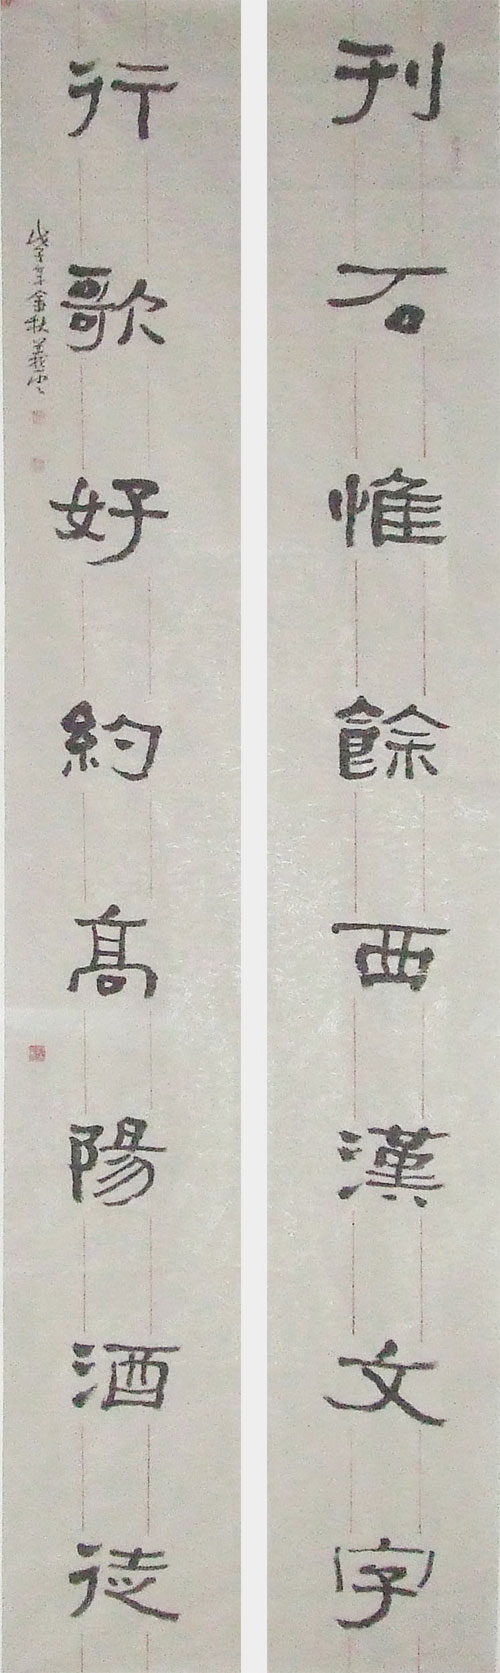 刊石惟餘西漢文字
行歌好約高陽酒徒
戊子年金秋